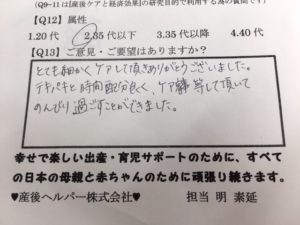 (Q9~11は[産後ケアと経済効果]の研究目的で利用する為の質問です)
【Q12】属性
1.20代 2.35代以下 3.35代以降 4.40代
【Q13】ご意見・ご要望はありますか?
とても細かくケアして頂きありがとうございました。
テキパキと時間配分良く、ケア 等して頂いて
のんびり過ごすことができました。
幸せで楽しい出産・育児サポートのために、すべて
の日本の母親と赤ちゃんのために頑張り続きます。
♥産後ヘルパー株式会社♥ 担当 明 素延